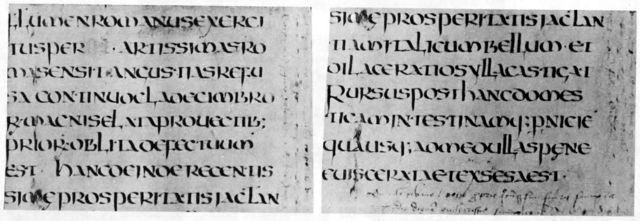 LLUMENROMANUSEXERCI
TUSPER · ARTISSIMASRO
MASENSIT·ANGUSTIASREFU
SA CONTINUOCLADECIMBRO
R·MACNISELATAPROUECTIB;
PRIOR·OBLITADEFECTUUM
EST · HANCDEINDERECENTIS
SIUEPROSPERITATISIACLAN
SIUEPROSPERITATISIACLAN
TIAMITALICUMBELLUM·ET
DILACERATIOSYLLACASTIGAT
RURSUSPOSTHANCDOMES
TICAMINTESTINAMQ;PNICIE
QUAUSQ;ADMEDULLASPENE
EUISCERATAETEXSESAEST·